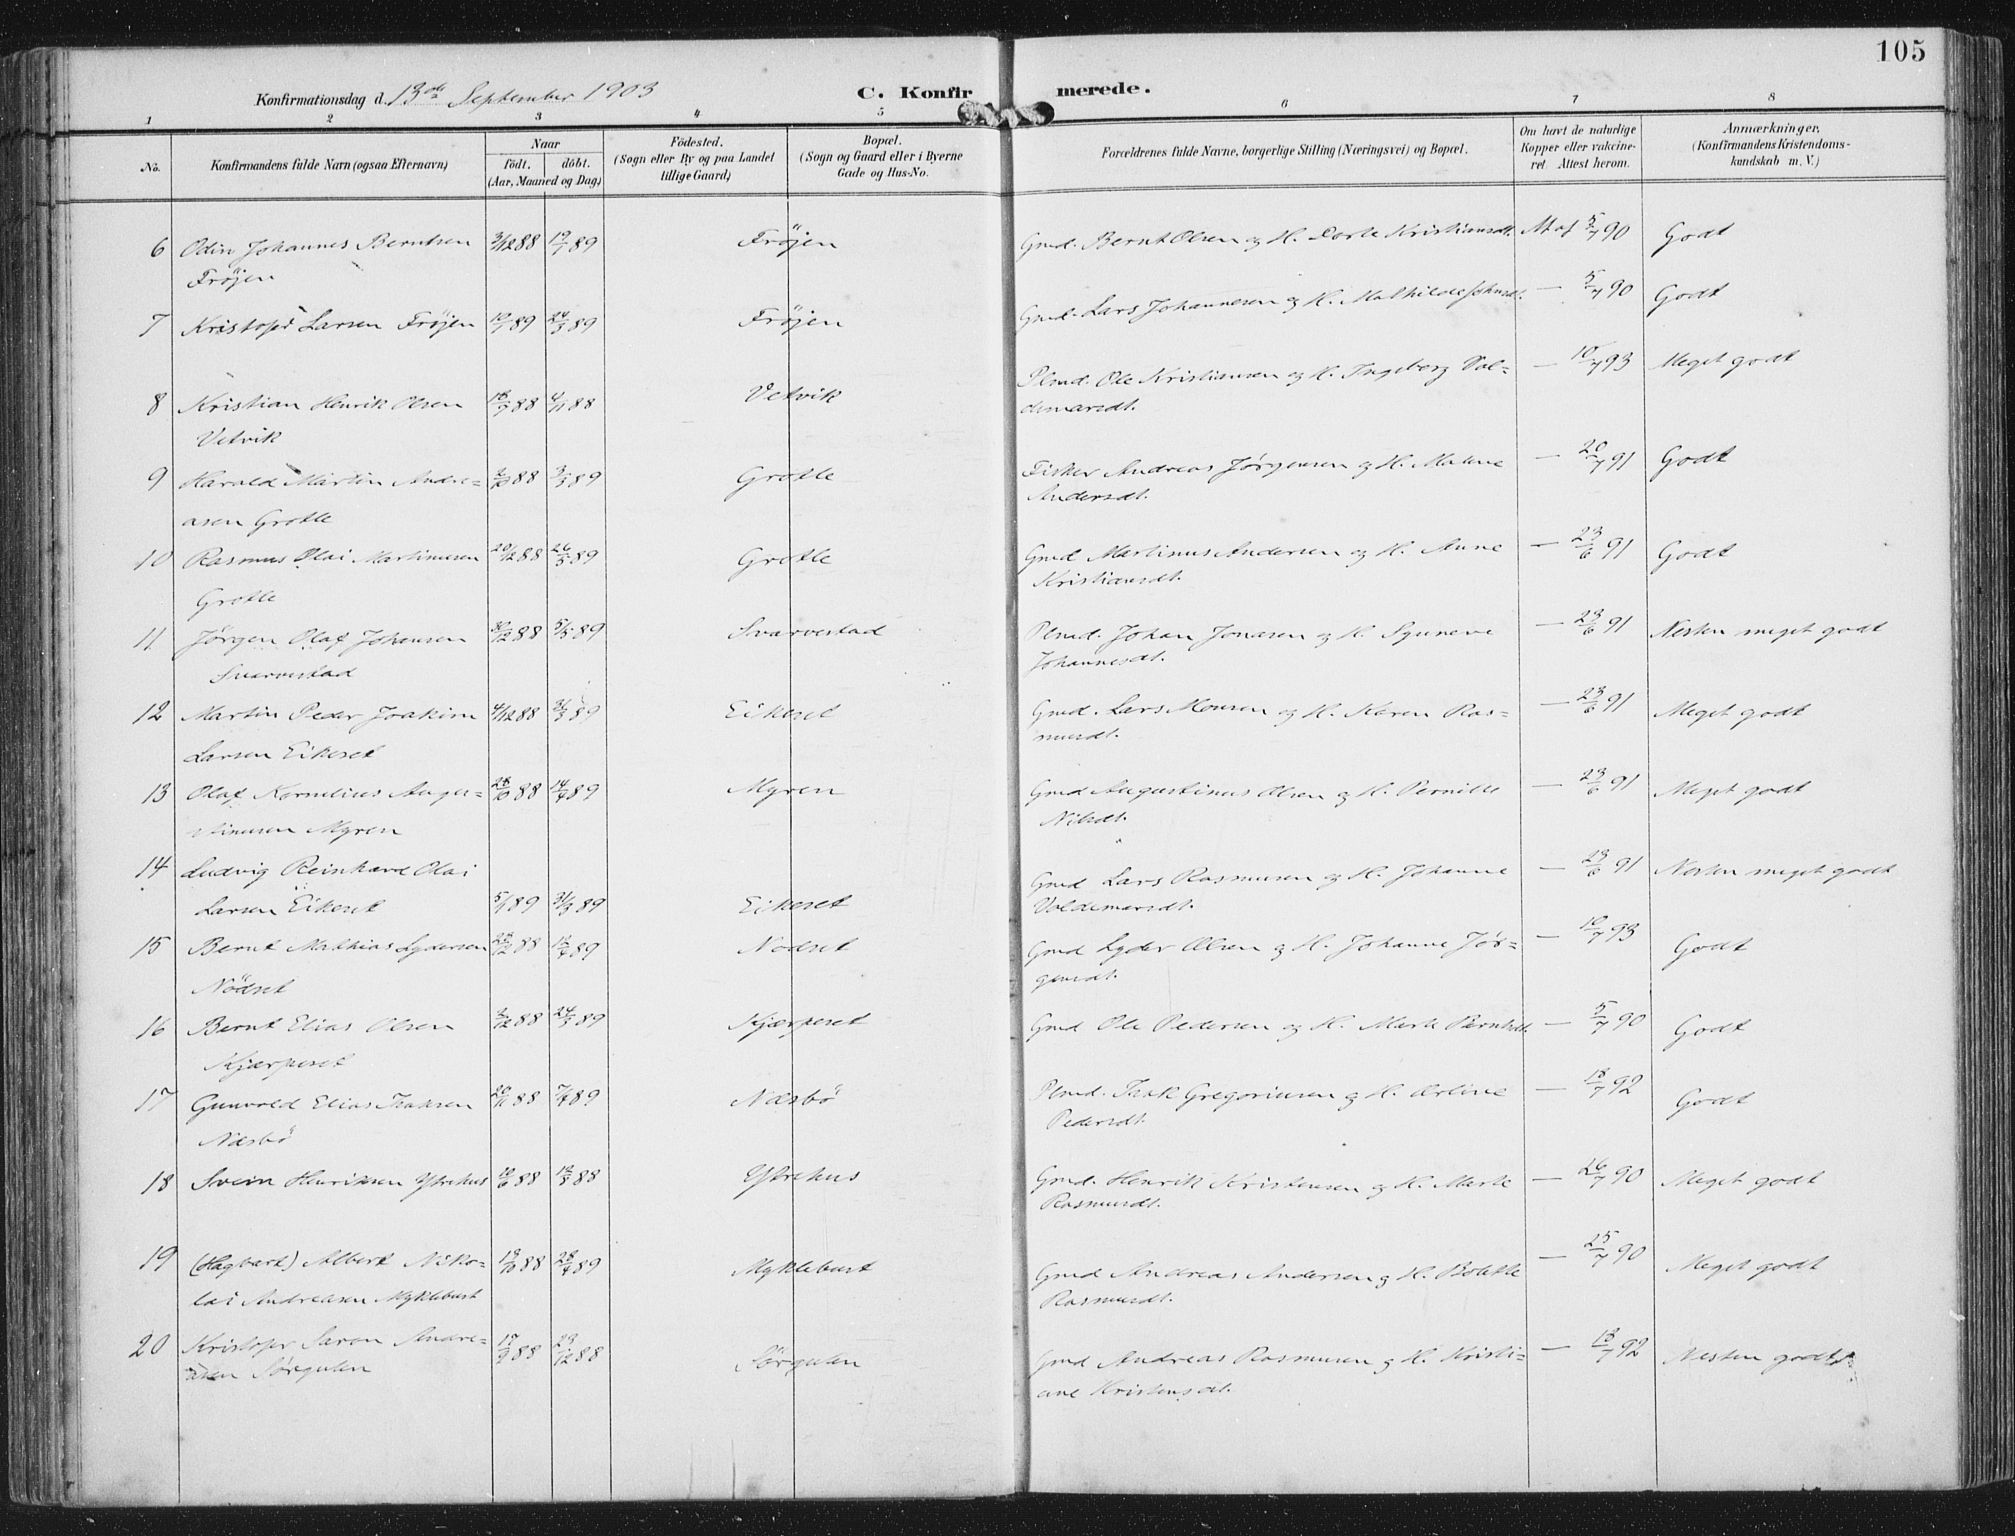 105
Konfirmationsdag d. 13de September 1903
C. Konfirmerede.
1 2 3 4 5 6 7 8
No.
Konfirmandens fulde Navn (ogsaa Efternavn)
Naar
födt. döbt.
(Aar, Maaned og Dag)
Födested.
(Sogn eller By og paa Landet
tillige Gaard)
Bopæl.
(Sogn og Gaard eller i Byerne
Gade og Hus-No.
Forældrenes fulde Navne, borgerlige Stilling (Næringsvei) og Bopæl.
Om havt de naturlige
Kopper eller vakcine-
ret. Attest herom.
Anmærkninger.
(Konfirmandens Kristendoms-
kundskab m. V.)
6 Odin Johannes Berntsen 3/12 88 19/1 89 Fröjen Gmd. Bernt Olsen og H. Dorte Kristiansdt. At af 5/7 90 Godt
Fröjen
7 Kristofer Larsen Fröjen 10/1 89 24/3 89 Fröjen Gmd. Lars Johannesen og H. Mathilde Johnsdt. — 5/7 90 Godt
8 Kristian Henrik Olsen 18/9 88 4/11 88 Vetvik Plmd. Ole Kristiansen og H. Ingeborg Vol- — 10/7 93 Meget godt
Vetvik demarsdt.
9 Harald Martin Andre- 2/10 88 3/3 89 Grotle Fisker Andreas Jörgensen og H. Malene — 20/7 91 Godt
asen Grotle Andersdt.
10 Rasmus Olai Martinusen 20/12 88 26/5 89 Grotle Gmd Martinus Andersen og H. Anne — 23/6 91 Godt
Grotle Kristiansdt.
11 Jörgen Olaf Johansen 30/12 88 5/5 89 Svarvestad Plmd. Johan Jonasen og H. Syneve — 23/6 91 Nesten meget godt
Svarvestad Johannesdt.
12 Martin Peder Joakim 4/12 88 31/3 89 Eikeset Gmd. Lars Monsen og H. Karen Ras- — 23/6 91 Meget godt
Larsen Eikeset musdt.
13 Olaf Kornelius Augu- 28/10 88 14/4 89 Myren Gmd Augustinus Olsen og H. Pernille — 23/6 91 Meget godt
stinusen Myren Nilsdt.
14 Ludvig Reinhard Olai Gmd Lars Rasmusen og H. Johanne — 23/6 91 Nesten meget godt
Larsen Eikeset 5/1 89 31/3 89 Eikeset Voldemarsdt.
15 Bernt Mathias Lydersen 28/12 88 12/4 89 Nödset Gmd Lyder Olsen og H. Johanne Jör- — 10/7 93 Godt
Nödset gensdt.
16 Bernt Elias Olsen 2/12 88 24/3 89 Kjærpeset Gmd Ole Pedersen og H. Marte Berntsdt. — 5/7 90 Godt
Kjærpeset
17 Gunvald Elias Isaksen 20/11 88 7/4 89 Næsbö Plmd. Isak Gregoriusen og H. Oline — 18/7 92 Godt
Næsbö Pedersdt.
18 Svein Henriksen Ytrehus 10/6 88 12/8 88 Ytrehus Gmd. Henrik Kristensen og H. Marte — 26/7 90 Meget godt
Rasmusdt.
19 (Hagbart) Albert Niko- 13/10 88 28/4 89 Myklebust Gmd Andreas Andersen og H. Bolette — 25/7 90 Meget godt
lai Andreasen Myklebust Rasmusdt.
20 Kristofer Saron Andre- 17/9 88 23/12 88 Sörgulen Gmd Andreas Rasmusen og H. Kristi- — 18/7 92 Nesten godt
asen Sörgulen ane Kristensdt.